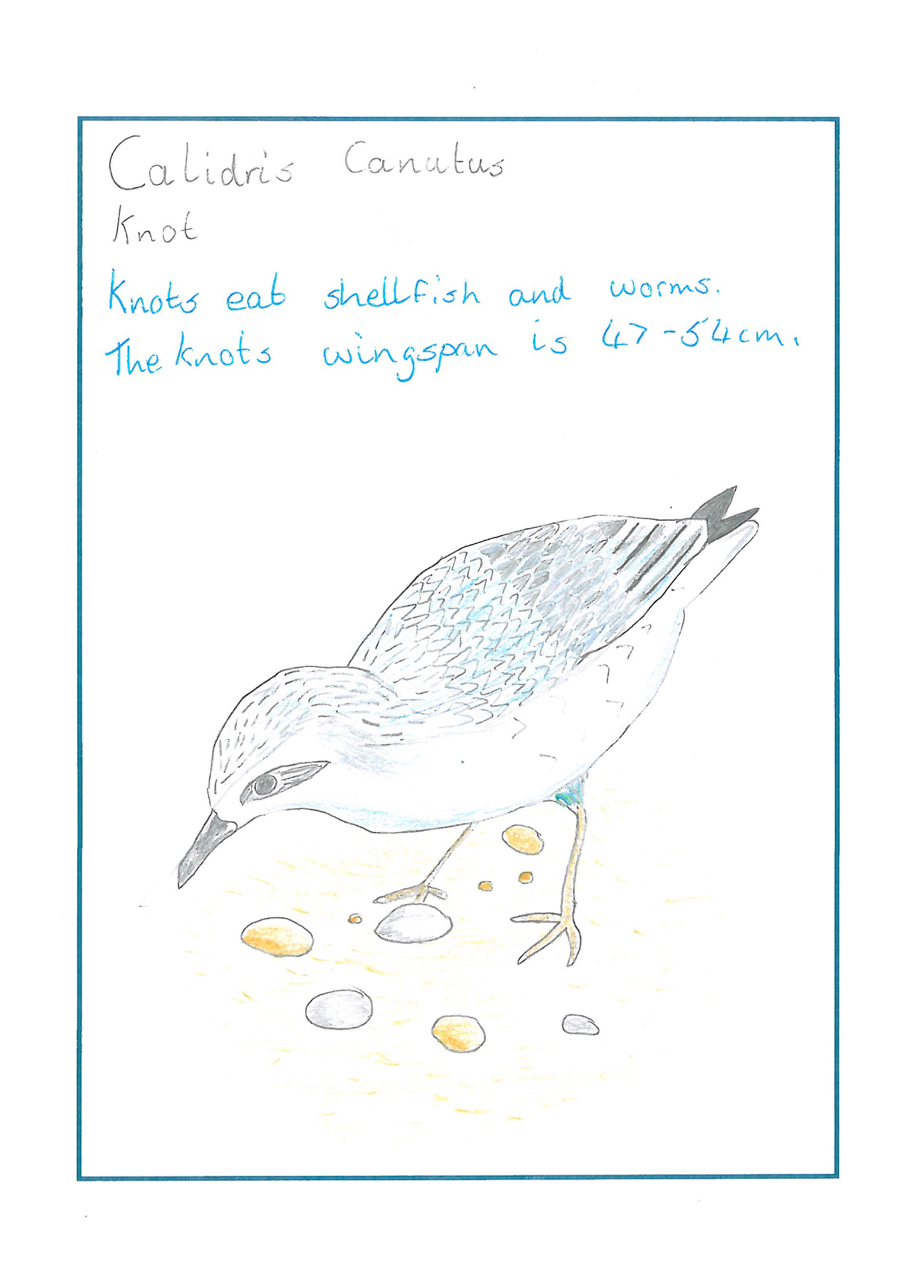 Calidris Canutus
Knot
Knots eat shellfish and worms.
The knots wingspan is 47-54cm.